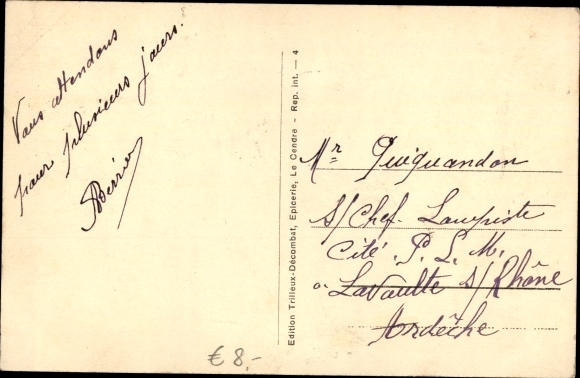 Vous attendons
pour plusieurs jours.
Berrier
Edition Trilleux-Décombat, Epicerie, Le Cendre - Rep. int. - 4
Mr Quiquandon
S/Chef. Lampiste
Cité. P. L. M.
a Lavoulte s/ Rhône
Ardêche
€ 8,-